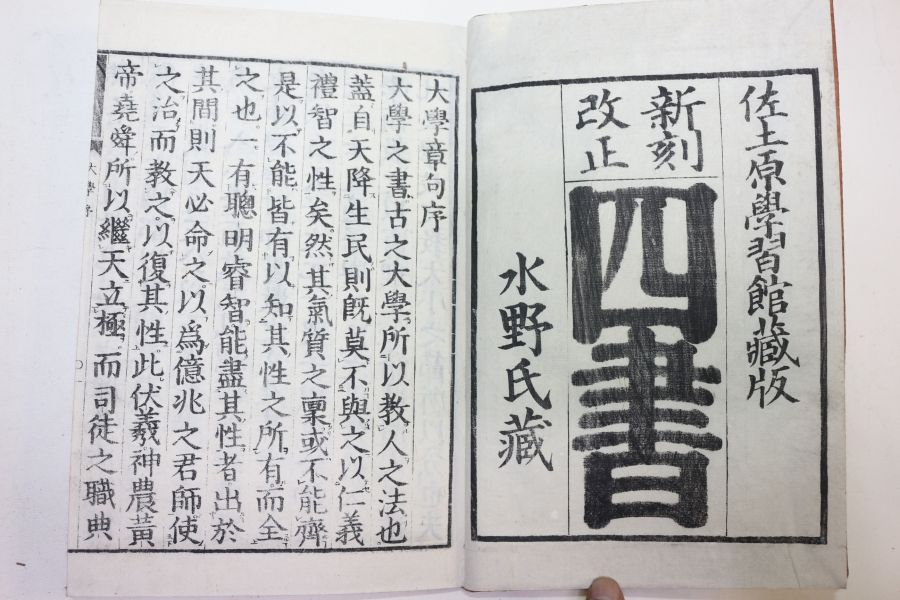 佐土原學習館藏版
新刻
改正
四書
水野氏藏
大學章句序
大學之書古之大學所以教人之法也
蓋自天降生民則既莫不與之以仁義
禮智之性矣然其氣質之稟或不能齊
是以不能皆有以知其性之所有而全
之也一有聰明睿智能盡其性者出於
其間則天必命之以爲億兆之君師使
之治而教之以復其性此伏羲神農黃
帝堯舜所以繼天立極而司徒之職典
大學序